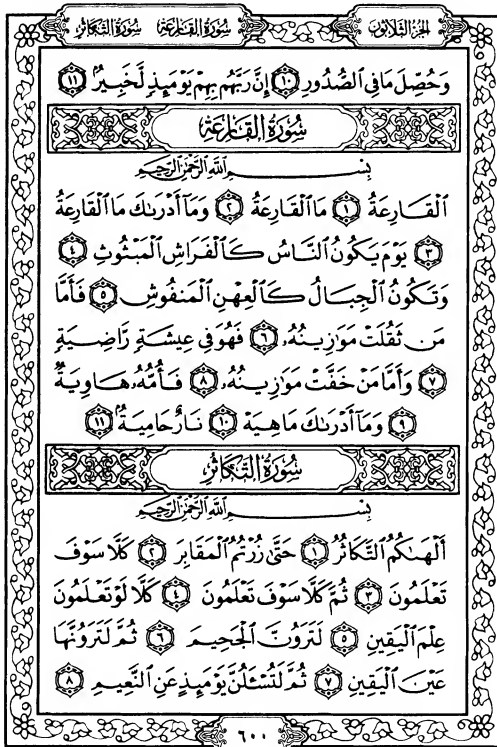 الجزء الثلاثون
سورة القارعة سورة التكاثر
وَحُصِّلَ مَا فِي ٱلصُّدُورِ ١٠ إِنَّ رَبَّهُم بِهِمْ يَوْمَئِذٍ لَّخَبِيرٌ ١١
سُورَةُ القَارِعَةِ
بِسْمِ ٱللَّهِ ٱلرَّحْمَٰنِ ٱلرَّحِيمِ
ٱلْقَارِعَةُ ١ مَا ٱلْقَارِعَةُ ٢ وَمَآ أَدْرَىٰكَ مَا ٱلْقَارِعَةُ
٣ يَوْمَ يَكُونُ ٱلنَّاسُ كَٱلْفَرَاشِ ٱلْمَبْثُوثِ ٤
وَتَكُونُ ٱلْجِبَالُ كَٱلْعِهْنِ ٱلْمَنفُوشِ ٥ فَأَمَّا
مَن ثَقُلَتْ مَوَٰزِينُهُۥ ٦ فَهُوَ فِي عِيشَةٍ رَّاضِيَةٍ
٧ وَأَمَّا مَنْ خَفَّتْ مَوَٰزِينُهُۥ ٨ فَأُمُّهُۥ هَاوِيَةٌ
٩ وَمَآ أَدْرَىٰكَ مَا هِيَهْ ١٠ نَارٌ حَامِيَةٌ ١١
سُورَةُ التَّكَاثُرِ
بِسْمِ ٱللَّهِ ٱلرَّحْمَٰنِ ٱلرَّحِيمِ
أَلْهَىٰكُمُ ٱلتَّكَاثُرُ ١ حَتَّىٰ زُرْتُمُ ٱلْمَقَابِرَ ٢ كَلَّا سَوْفَ
تَعْلَمُونَ ٣ ثُمَّ كَلَّا سَوْفَ تَعْلَمُونَ ٤ كَلَّا لَوْ تَعْلَمُونَ
عِلْمَ ٱلْيَقِينِ ٥ لَتَرَوُنَّ ٱلْجَحِيمَ ٦ ثُمَّ لَتَرَوُنَّهَا
عَيْنَ ٱلْيَقِينِ ٧ ثُمَّ لَتُسْـَٔلُنَّ يَوْمَئِذٍ عَنِ ٱلنَّعِيمِ ٨
٦٠٠